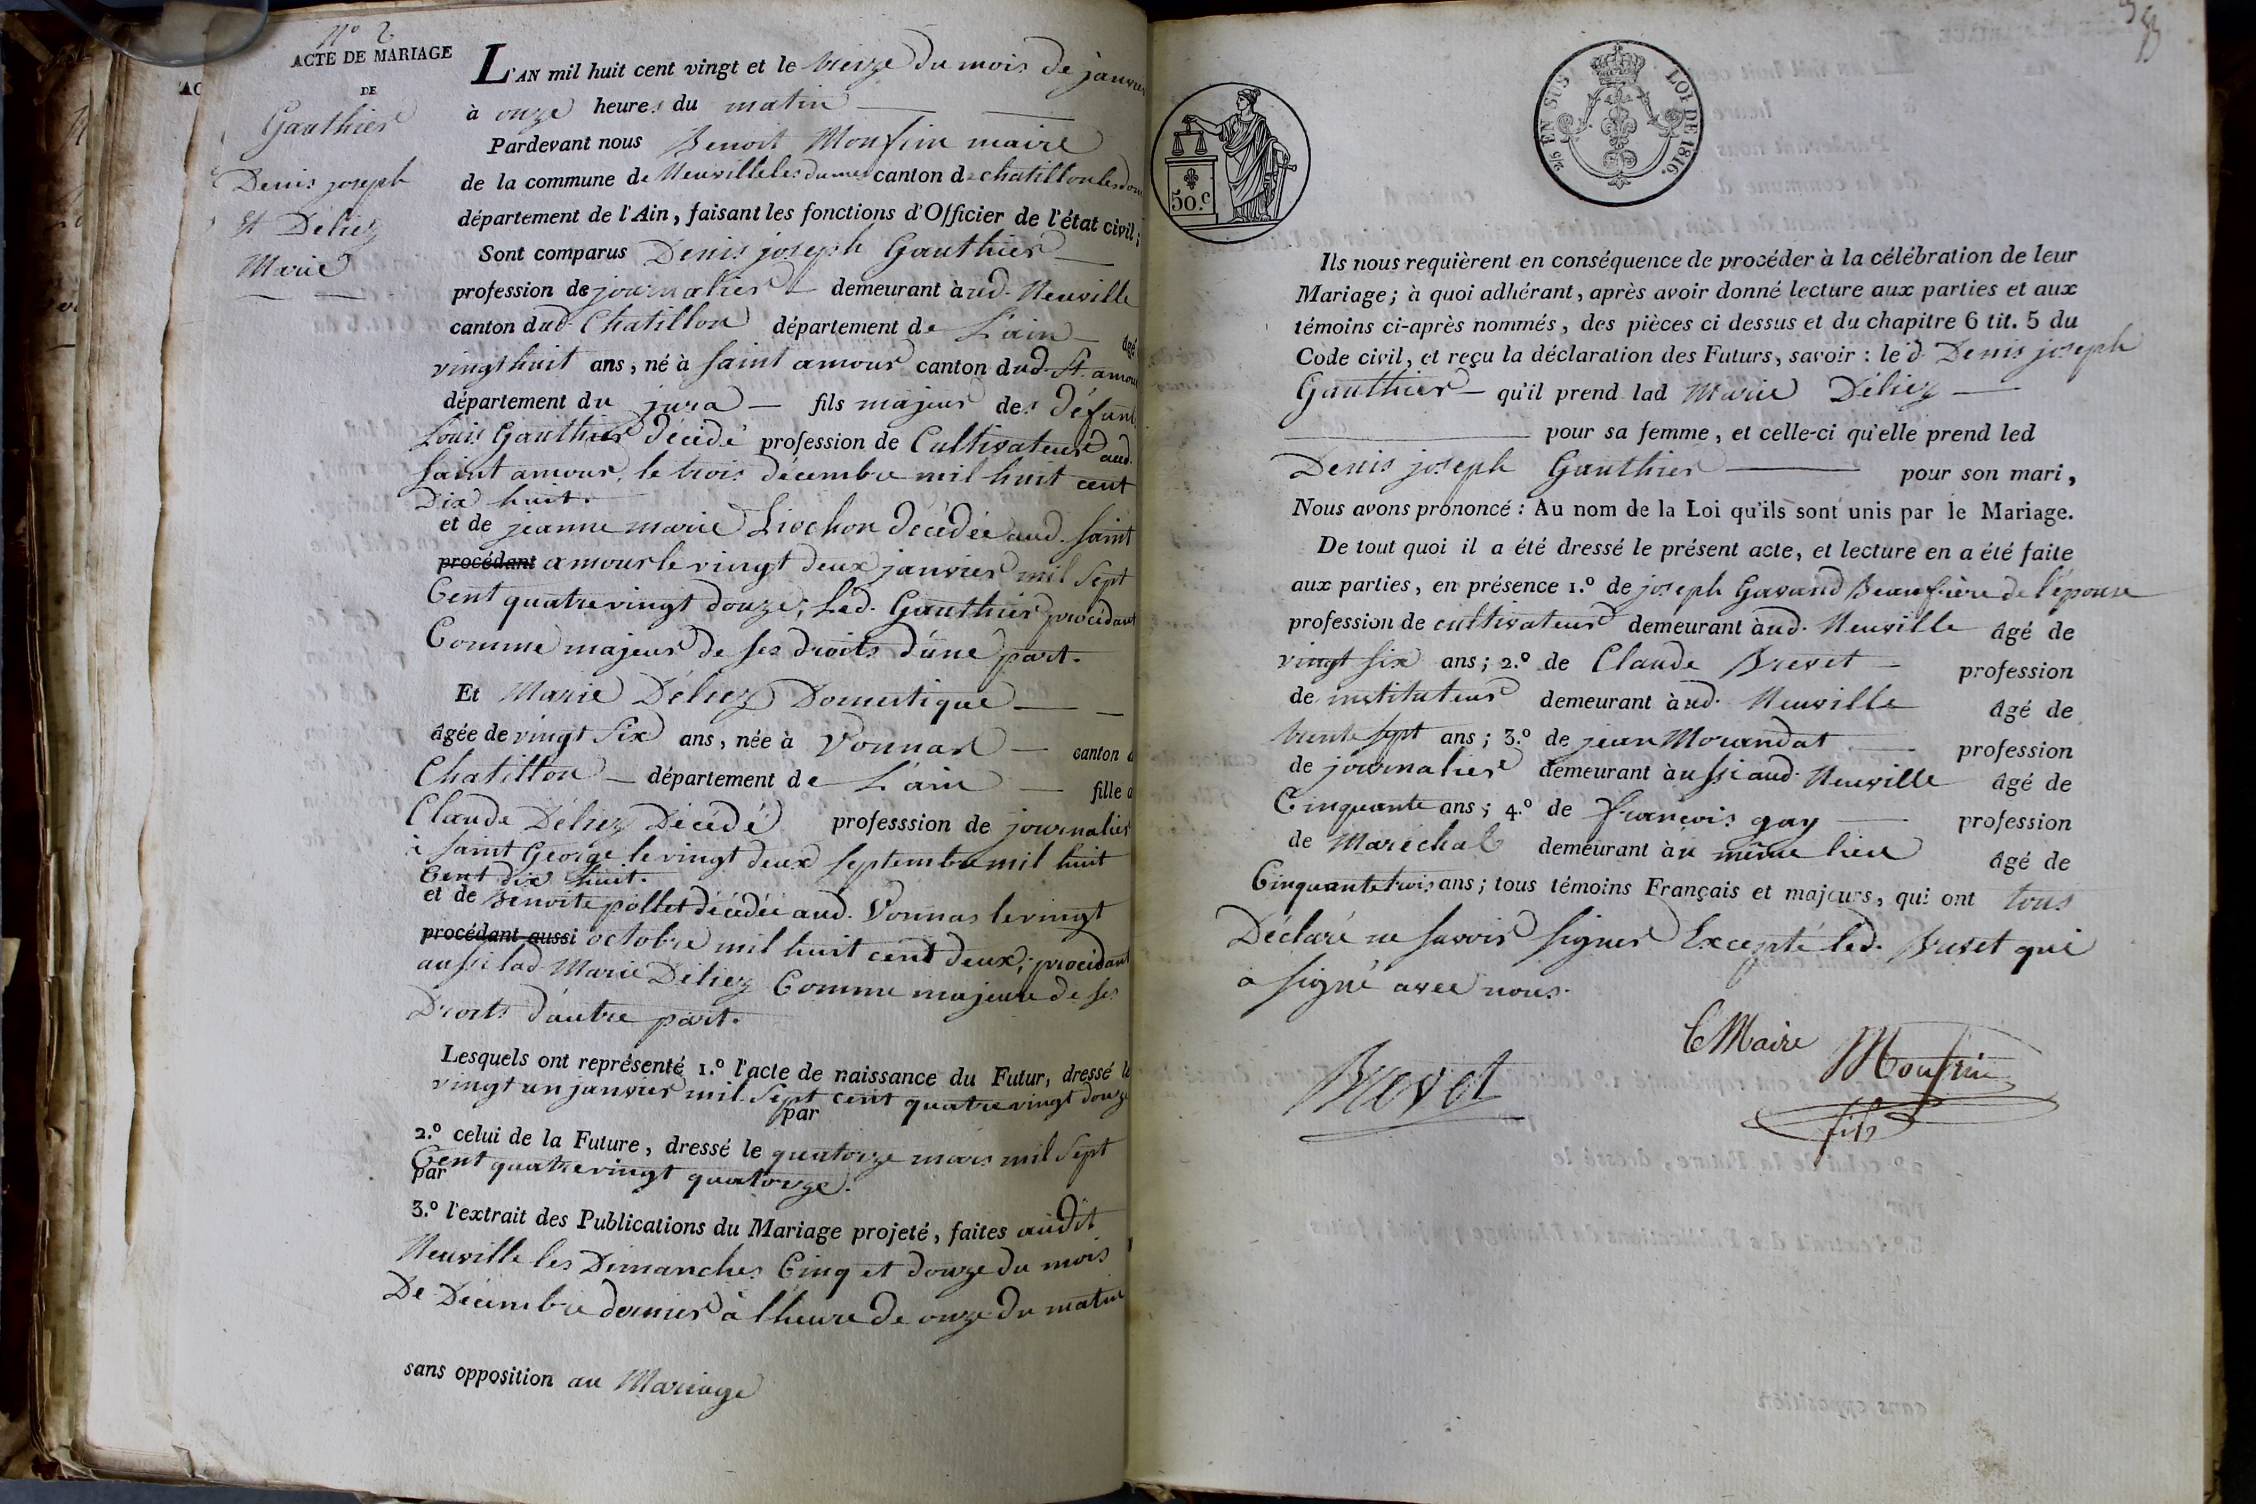 N° 2
ACTE DE MARIAGE
DE
Gauthier
Denis joseph
et Déliez
Marie
L'AN mil huit cent vingt et le treize du mois de janvier
à onze heures du matin
Pardevant nous Benoit Monfin maire
de la commune de Neuville les dames canton de chatillon les dom
département de l'Ain, faisant les fonctions d'Officier de l'état civil;
Sont comparus Denis joseph Gauthier
profession de journalier demeurant àud. Neuville
canton dud. Chatillon département de L'ain âgé
vingt huit ans, né à Saint amour canton dud. St. amour
département du jura fils majeur des défunts
Louis Gauthier décédé profession de Cultivateur aud.
Saint amour, le trois décembre mil huit cent
Dix huit.
et de jeanne marie Liochon décédée aud. Saint
procédant amour le vingt deux janvier mil Sept
Cent quatre vingt douze; Led. Gauthier procédant
Comme majeur de ses droits d'une part.
Et Marie Déliez Domestique
âgée de vingt Six ans, née à Vonnas canton d
Chatillon département de L'ain fille d
Claude Déliez Décédé professsion de journalier
à Saint George le vingt deux Septembre mil huit
Cent dix huit.
et de Benoite pollet décédée aud. Vonnas le vingt
procédant aussi octobre mil huit cent deux; procédant
aussi lad Marie Déliez Comme majeure de ses
Droits d'autre part.
Lesquels ont représenté 1.º l'acte de naissance du Futur, dressé le
vingt un janvier mil Sept cent quatre vingt douze
par
2.º celui de la Future, dressé le quatorze mars mil Sept
Cent quatre vingt quatorze.
par
3.º l'extrait des Publications du Mariage projeté, faites audit
Neuville les Dimanches Cinq et douze du mois
De Décembre dernier à l'heure de onze du matin
sans opposition au Mariage
50.c
2/5 EN SUS LOI DE 1816.
Ils nous requièrent en conséquence de procéder à la célébration de leur
Mariage; à quoi adhérant, après avoir donné lecture aux parties et aux
témoins ci-après nommés, des pièces ci dessus et du chapitre 6 tit. 5 du
Code civil, et reçu la déclaration des Futurs, savoir: le d. Denis joseph
Gauthier qu'il prend lad Marie Déliez
pour sa femme, et celle-ci qu'elle prend led
Denis joseph Gauthier pour son mari,
Nous avons prononcé: Au nom de la Loi qu'ils sont unis par le Mariage.
De tout quoi il a été dressé le présent acte, et lecture en a été faite
aux parties, en présence 1.º de joseph Gavand Beaufrère de l'épouse
profession de cultivateur demeurant àud. Neuville âgé de
vingt six ans; 2.º de Claude Brevet profession
de instituteur demeurant àud. Neuville âgé de
trente sept ans; 3.º de jean Morandat profession
de journalier demeurant àussi aud. Neuville âgé de
Cinquante ans; 4.º de françois gay profession
de Maréchal demeurant àu même lieu âgé de
Cinquante trois ans; tous témoins Français et majeurs, qui ont tous
Déclaré ne savoir signer Excepté led. Brevet qui
a signé avec nous.
Le Maire Monfin
fils
Brevet